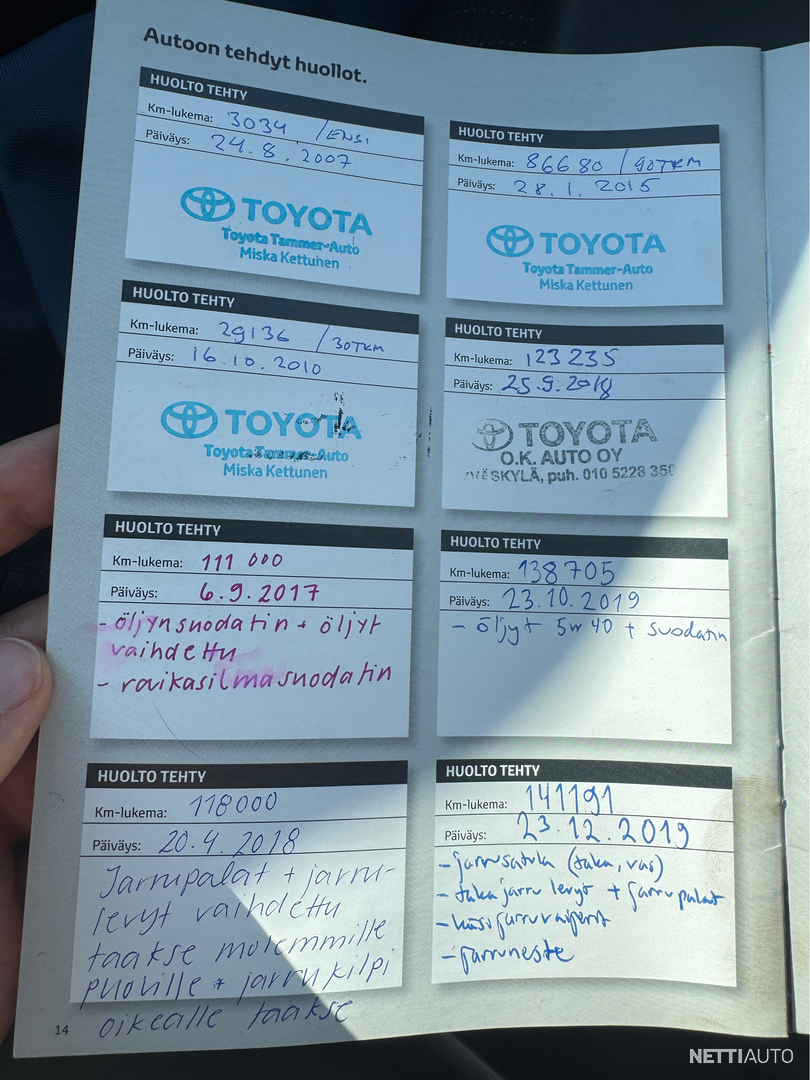 Autoon tehdyt huollot.
HUOLTO TEHTY
Km-lukema: 3034 /ENSI
Päiväys: 24.8.2007
TOYOTA
Toyota Tammer-Auto
Miska Kettunen
HUOLTO TEHTY
Km-lukema: 29136 /30TKM
Päiväys: 16.10.2010
TOYOTA
Toyota Tammer-Auto
Miska Kettunen
HUOLTO TEHTY
Km-lukema: 111 000
Päiväys: 6.9.2017
- öljynsuodatin + öljyt
vaihdettu
- raikasilmasuodatin
HUOLTO TEHTY
Km-lukema: 118000
Päiväys: 20.4.2018
Jarrupalat + jarru-
levyt vaihdettu
taakse molemmille
puolille + jarrukilpi
oikealle taakse
14
HUOLTO TEHTY
Km-lukema: 86680 /90TKM
Päiväys: 28.1.2015
TOYOTA
Toyota Tammer-Auto
Miska Kettunen
HUOLTO TEHTY
Km-lukema: 123235
Päiväys: 25.9.2018
TOYOTA
O.K. AUTO OY
puh. 010 5228 350
HUOLTO TEHTY
Km-lukema: 138705
Päiväys: 23.10.2019
- öljyt 5w40 + suodatin
HUOLTO TEHTY
Km-lukema: 141191
Päiväys: 23.12.2019
- jarrusatula (taka, vas)
- takajarru levyt + jarrupalat
- käsijarruvaijerit
- jarruneste
NETTIAUTO